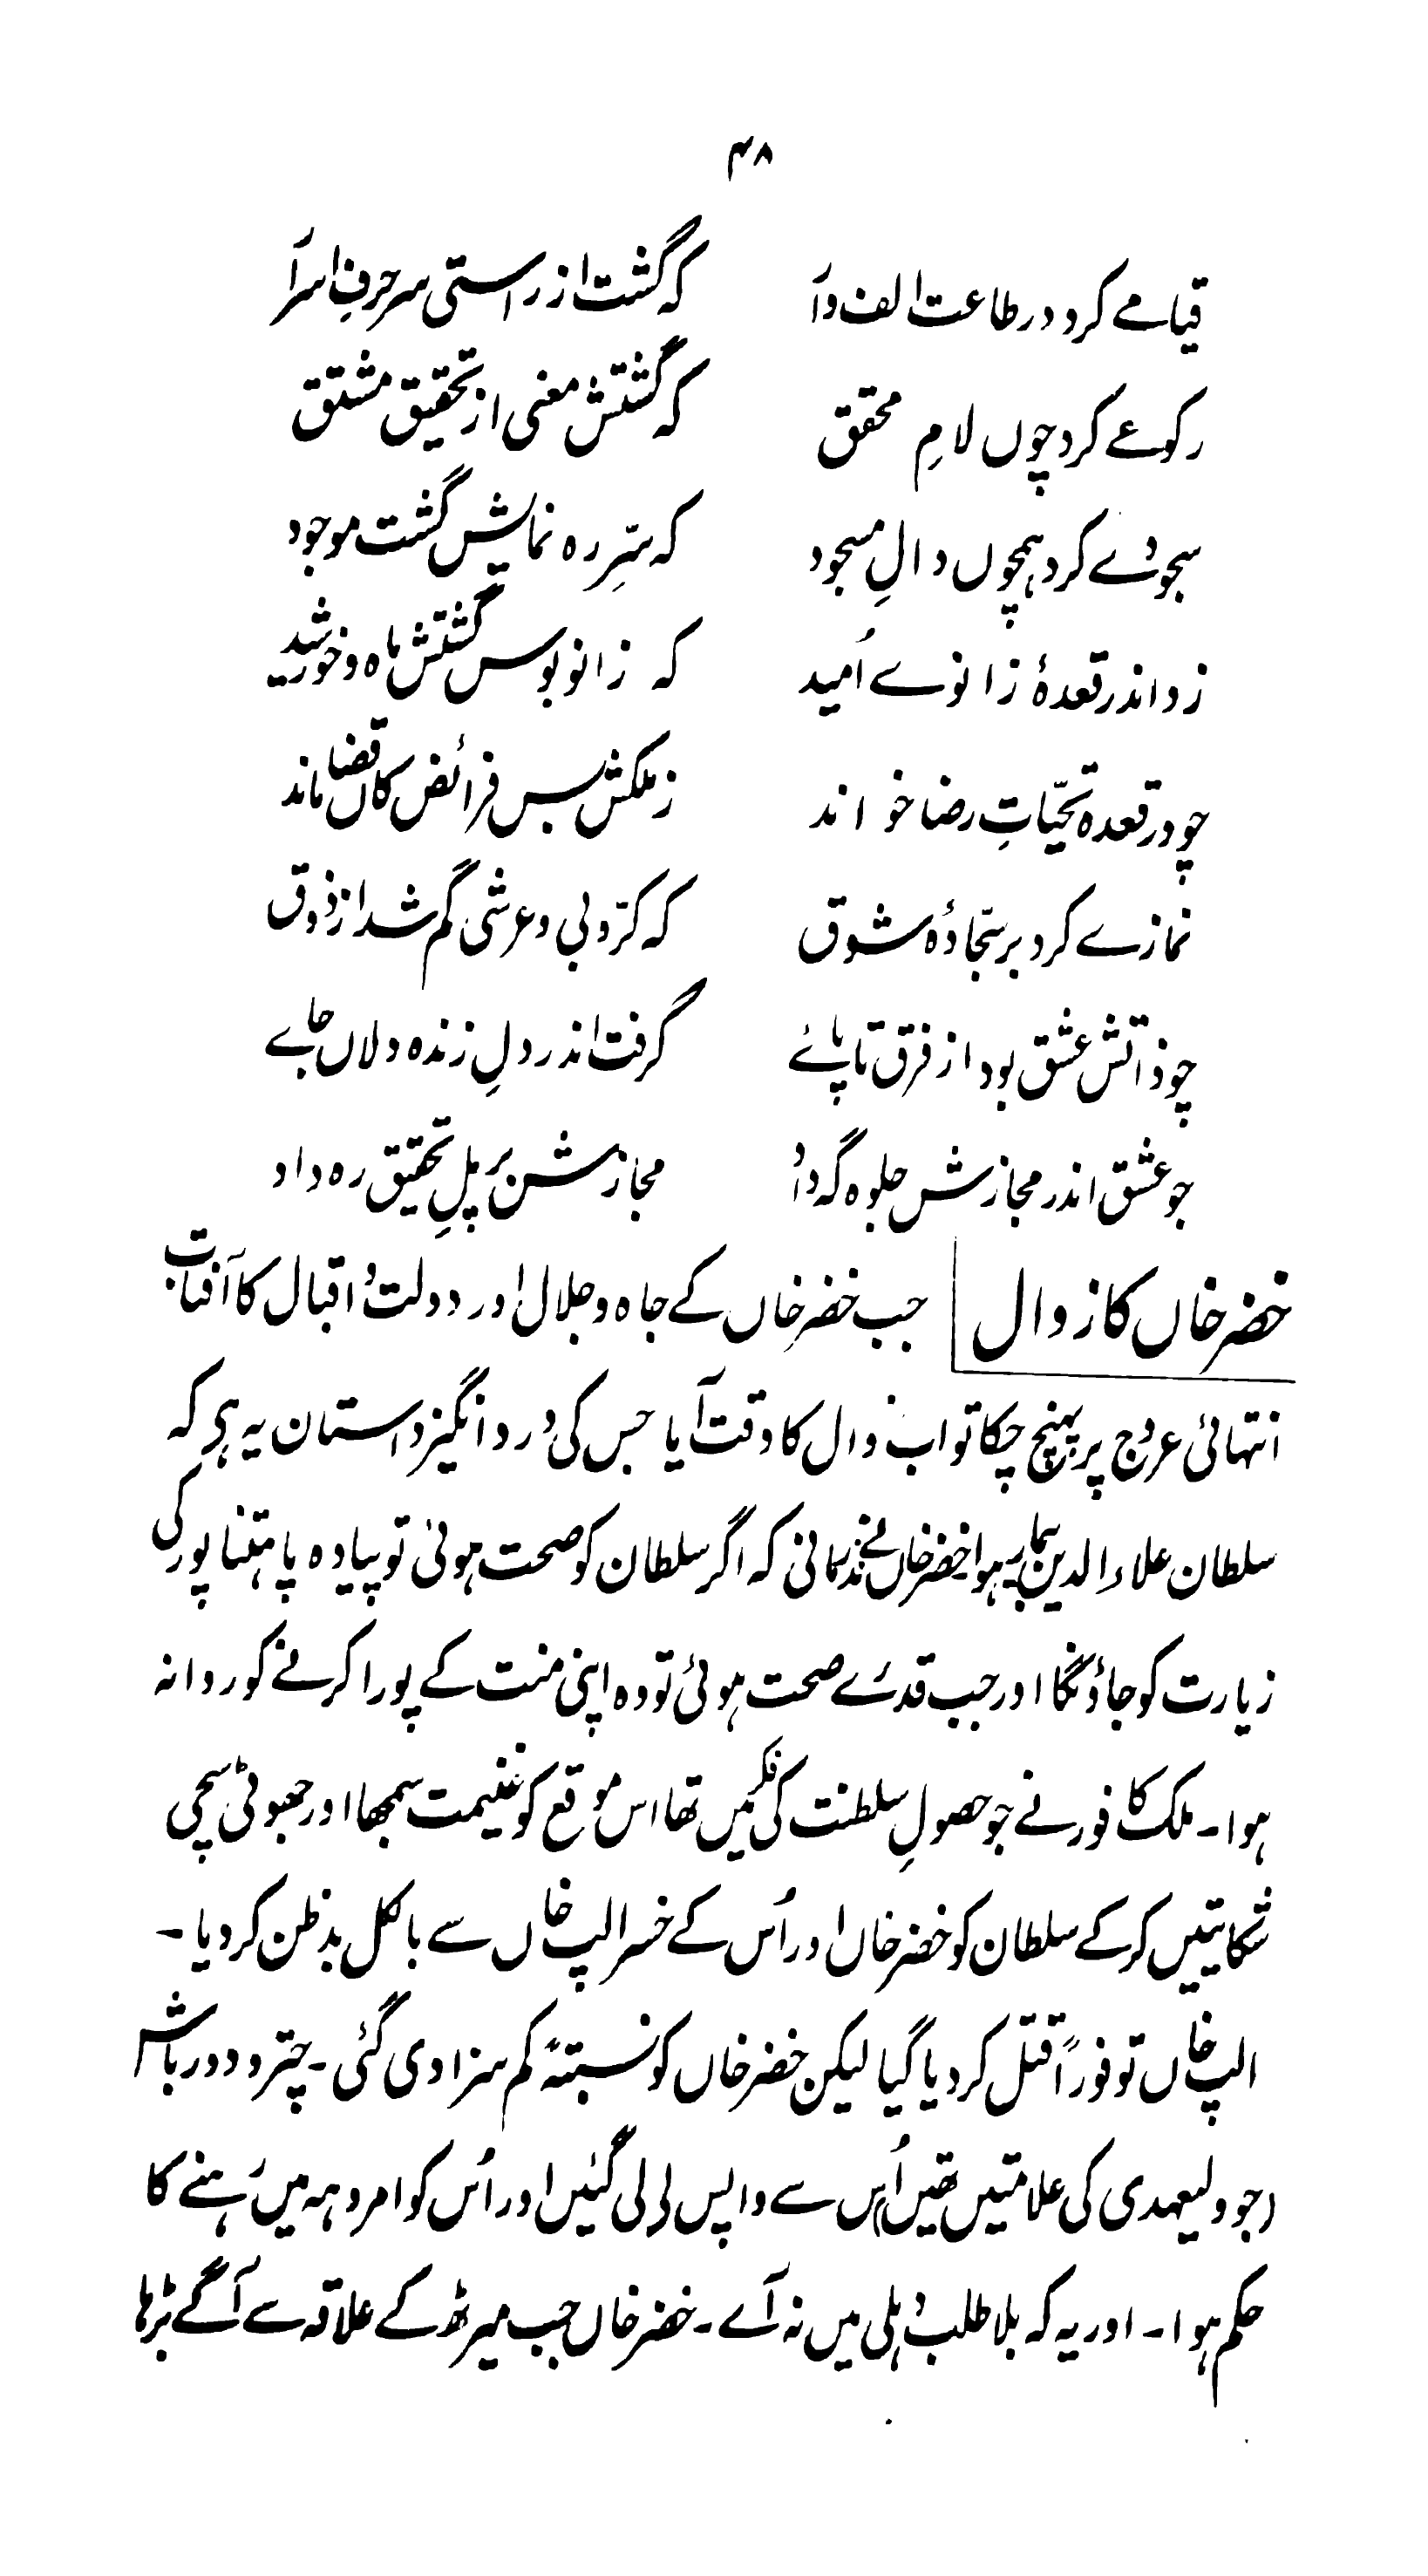 ۴۸
قیامے کرد در طاعت الف وآر که گشت از راستی سر حرفِ اسرار
رکوعے کرد چوں لامِ محقق که گشتش معنی از تحقیق مشتق
سجودے کرد ہمچوں دالِ مسجود که سّرِ ره نمایش گشت موجود
زد اندر قعدۂ زانوے اُمید که زانو بوس گشتش ماه و خورشید
چو در قعده تحیّاتِ رضا خواند ز ملکش بس فرائض کاں قضا ماند
نمازے کرد بر سجّادۂ شوق که کرّوبی و عرشی گم شد از ذوق
چو ذاتش عشق بود از فرق تا پائے گرفت اندر دلِ زنده دلاں جاے
چو عشق اندر مجازش جلوه گه داد مجازش بر پلِ تحقیق ره داد
خضر خاں کا زوال جب خضر خاں کے جاہ و جلال اور دولت و اقبال کا آفتاب
انتہائی عروج پر پہنچ چکا تو اب زوال کا وقت آیا جس کی درد انگیز داستان یہ ہی کہ
سلطان علاء الدین بیمار ہوا خضر خاں نے نذر مانی کہ اگر سلطان کو صحت ہوئی تو پیادہ پا ہتناپور کی
زیارت کو جاؤنگا اور جب قدرے صحت ہوئی تو وہ اپنی منت کے پورا کرنے کو روانہ
ہوا۔ ملک کافور نے جو حصولِ سلطنت کی فکر میں تھا اس موقع کو غنیمت سمجھا اور جھوٹی سچی
شکایتیں کر کے سلطان کو خضر خاں اور اُس کے خسر الپ خاں سے بالکل بدظن کر دیا۔
الپ خاں تو فوراً قتل کر دیا گیا لیکن خضر خاں کو نسبتہً کم سزا دی گئی۔ چتر و دورباش
(جو ولیعہدی کی علامتیں تھیں) اُس سے واپس لے لی گئیں اور اُس کو امروہہ میں رہنے کا
حکم ہوا۔ اور یہ کہ بلا طلب دہلی میں نہ آے۔ خضر خاں جب میرٹھ کے علاقہ سے آگے بڑھا